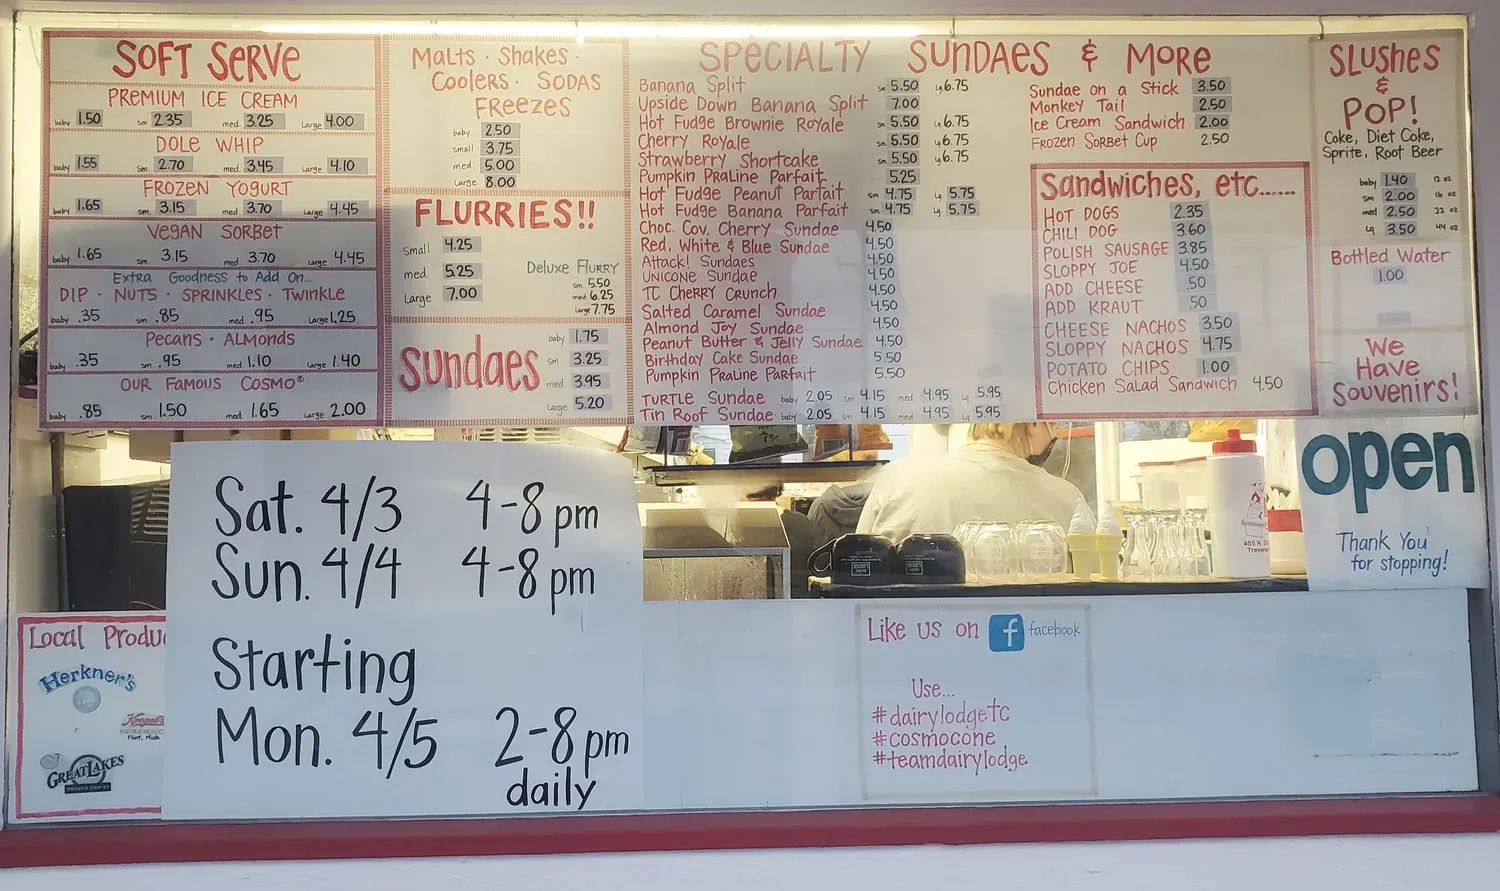 SOFT SERVE
PREMIUM ICE CREAM
baby 1.50 sm 2.35 med. 3.25 Large 4.00
DOLE WHIP
baby 1.55 sm. 2.70 med 3.45 Large 4.10
FROZEN YOGURT
baby 1.65 sm. 3.15 med 3.70 Large 4.45
VEGAN SORBET
baby 1.65 sm. 3.15 med. 3.70 Large 4.45
Extra Goodness to Add On...
DIP · NUTS · SPRINKLES · TWINKLE
baby .35 sm .85 med .95 Large 1.25
Pecans · Almonds
baby .35 sm .95 med 1.10 Large 1.40
OUR FAMOUS COSMO®
baby .85 sm 1.50 med. 1.65 Large 2.00
Malts · Shakes ·
Coolers · SODAS
FREEZES
baby 2.50
small 3.75
med. 5.00
Large 8.00
FLURRIES!!
Small 4.25
med 5.25
Large 7.00
Deluxe Flurry
sm. 5.50
med. 6.25
Large 7.75
Sundaes
baby 1.75
sm. 3.25
med 3.95
Large 5.20
SPECIALTY SUNDAES & MORE
Banana Split sm 5.50 lg 6.75
Upside Down Banana Split 7.00
Hot Fudge Brownie Royale sm 5.50 lg 6.75
Cherry Royale sm 5.50 lg 6.75
Strawberry Shortcake sm 5.50 lg 6.75
Pumpkin Praline Parfait 5.25
Hot Fudge Peanut Parfait sm 4.75 lg 5.75
Hot Fudge Banana Parfait sm 4.75 lg 5.75
Choc. Cov. Cherry Sundae 4.50
Red, White & Blue Sundae 4.50
Attack! Sundaes 4.50
UNICONE Sundae 4.50
TC CHERRY CRUNCH 4.50
Salted Caramel Sundae 4.50
Almond Joy Sundae 4.50
Peanut Butter & Jelly Sundae 4.50
Birthday Cake Sundae 5.50
Pumpkin Praline Parfait 5.50
TURTLE Sundae baby 2.05 sm 4.15 med 4.95 lg 5.95
Tin Roof Sundae baby 2.05 sm 4.15 med 4.95 lg 5.95
Sundae on a Stick 3.50
Monkey Tail 2.50
Ice Cream Sandwich 2.00
Frozen Sorbet Cup 2.50
Sandwiches, etc......
HOT DOGS 2.35
CHILI DOG 3.60
POLISH SAUSAGE 3.85
SLOPPY JOE 4.50
ADD CHEESE .50
ADD KRAUT .50
CHEESE NACHOS 3.50
SLOPPY NACHOS 4.75
POTATO CHIPS 1.00
Chicken Salad Sandwich 4.50
SLUSHES
&
POP!
Coke, Diet Coke,
Sprite, Root Beer
baby 1.40 12 oz
sm 2.00 16 oz
med 2.50 22 oz
Lg 3.50 44 oz
Bottled Water
1.00
We
Have
Souvenirs!
open
Thank You
for stopping!
Sat. 4/3 4-8pm
Sun. 4/4 4-8pm
Starting
Mon. 4/5 2-8pm
daily
Local Produ
Herkner's
Koegel's
Flint, Mich
GREAT LAKES
POTATO CHIP CO
Like us on f facebook
Use...
#dairylodgetc
#cosmocone
#teamdairylodge
405 N. D
Travers